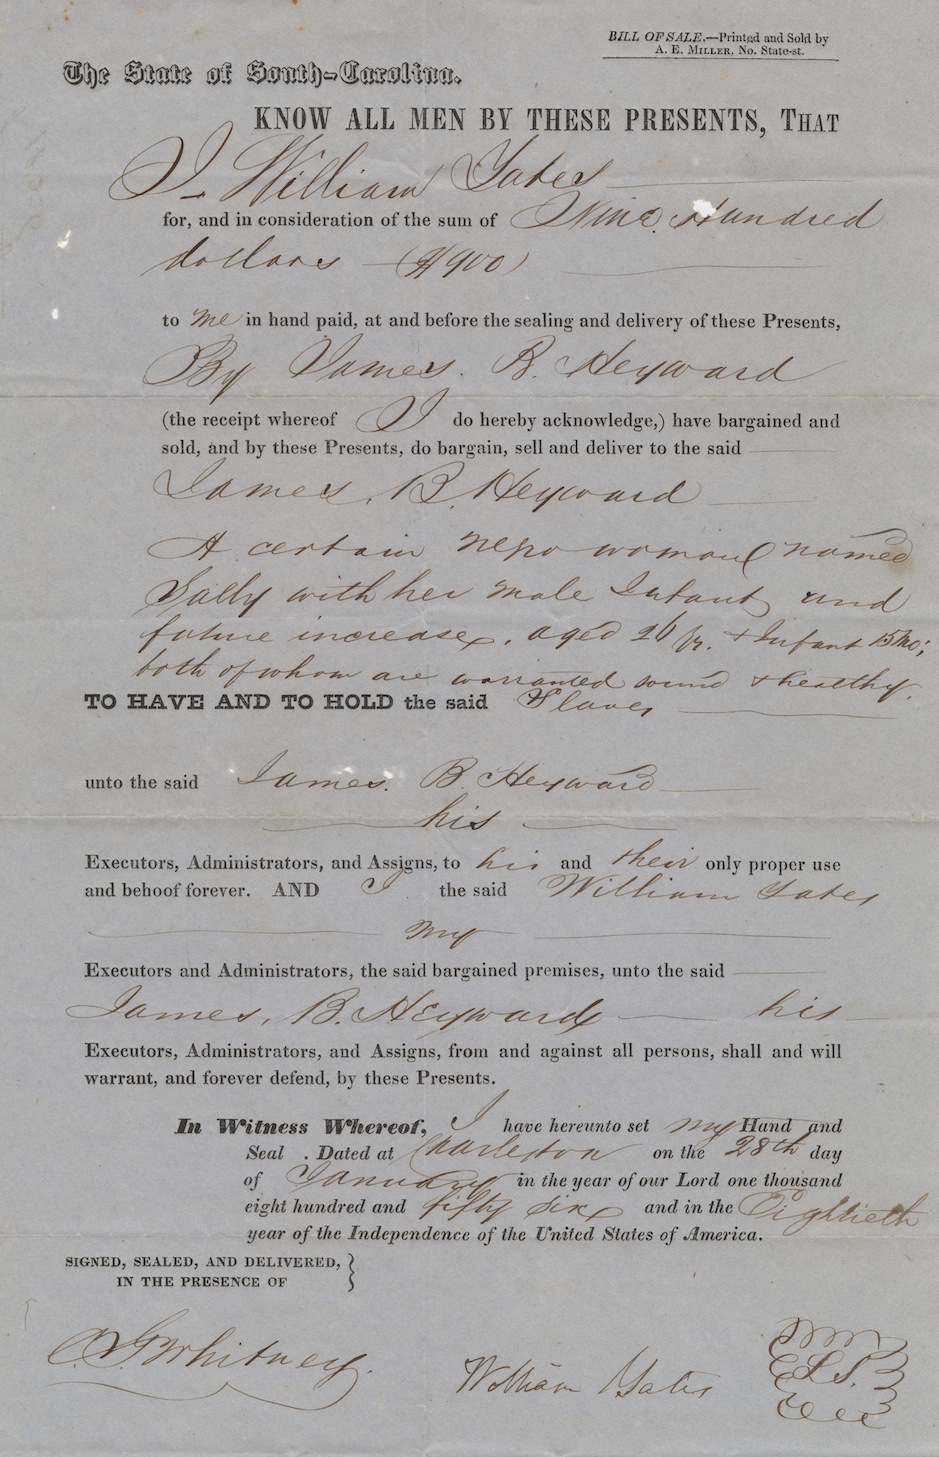 BILL OF SALE.—Printed and Sold by
A. E. MILLER, No. State-st.
The State of South-Carolina.
KNOW ALL MEN BY THESE PRESENTS, THAT
I William Yates
for, and in consideration of the sum of Nine Hundred
dollars ($900)
to me in hand paid, at and before the sealing and delivery of these Presents,
By James. B. Heyward
(the receipt whereof I do hereby acknowledge,) have bargained and
sold, and by these Presents, do bargain, sell and deliver to the said
James. B. Heyward
A certain negro woman named
Sally with her male Infant and
future increase, aged 26 yr. & Infant 15 mo;
both of whom are warranted sound & healthy.
TO HAVE AND TO HOLD the said Slaves
unto the said James. B. Heyward
his
Executors, Administrators, and Assigns, to his and their only proper use
and behoof forever. AND I the said William Yates
my
Executors and Administrators, the said bargained premises, unto the said
James, B. Heyward his
Executors, Administrators, and Assigns, from and against all persons, shall and will
warrant, and forever defend, by these Presents.
In Witness Whereof, I have hereunto set my Hand and
Seal . Dated at Charleston on the 28th day
of January in the year of our Lord one thousand
eight hundred and fifty six and in the Eightieth
year of the Independence of the United States of America.
SIGNED, SEALED, AND DELIVERED,
IN THE PRESENCE OF
Whitney.
William Yates
L. S.